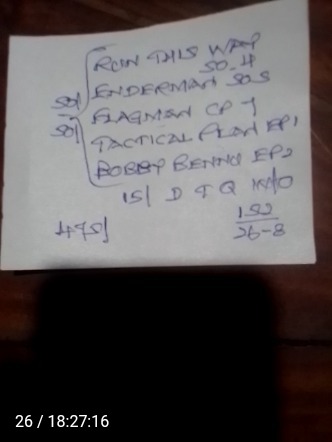 RUN THIS WAY
50-4
ENDERMAN SOS
501
501
FLAGMAN CP 1
TACTICAL PLAN EP1
BOBBY BENNU EP2
15/ D T Q IN/O
475/
152
26-8
26 / 18:27:16